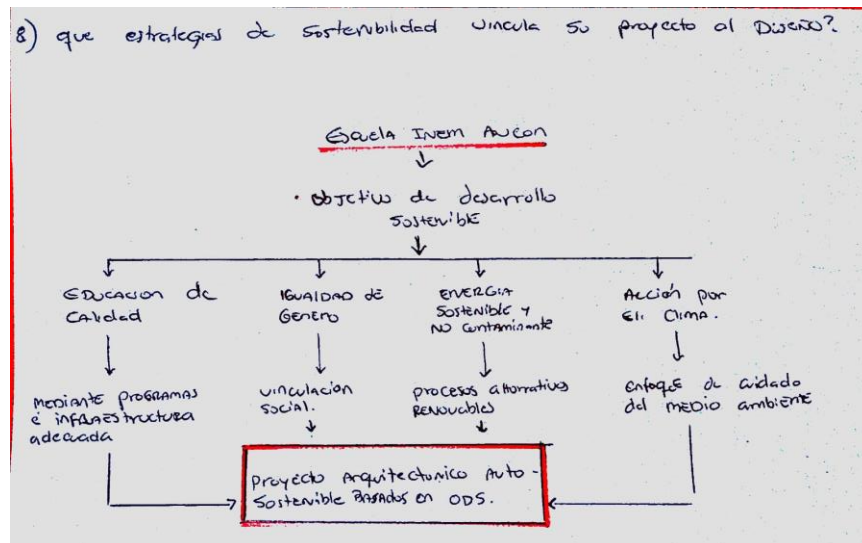 8) que estrategias de sostenibilidad vincula su proyecto al Diseño?
Escuela Inem Ancon
• objetivo de desarrollo
sostenible
EDUCACION de
Calidad
IGUALDAD de
Genero
ENERGIA
Sostenible y
NO contaminante
Acción por
El Clima.
MEDIANTE PROGRAMAS
e INFRAESTRUCTURA
adecuada
vinculación
social.
procesos alternativos
RENOVABLES
enfoque de cuidado
del MEDIO ambiente
Proyecto Arquitectonico Auto-
Sostenible BASADOS en ODS.